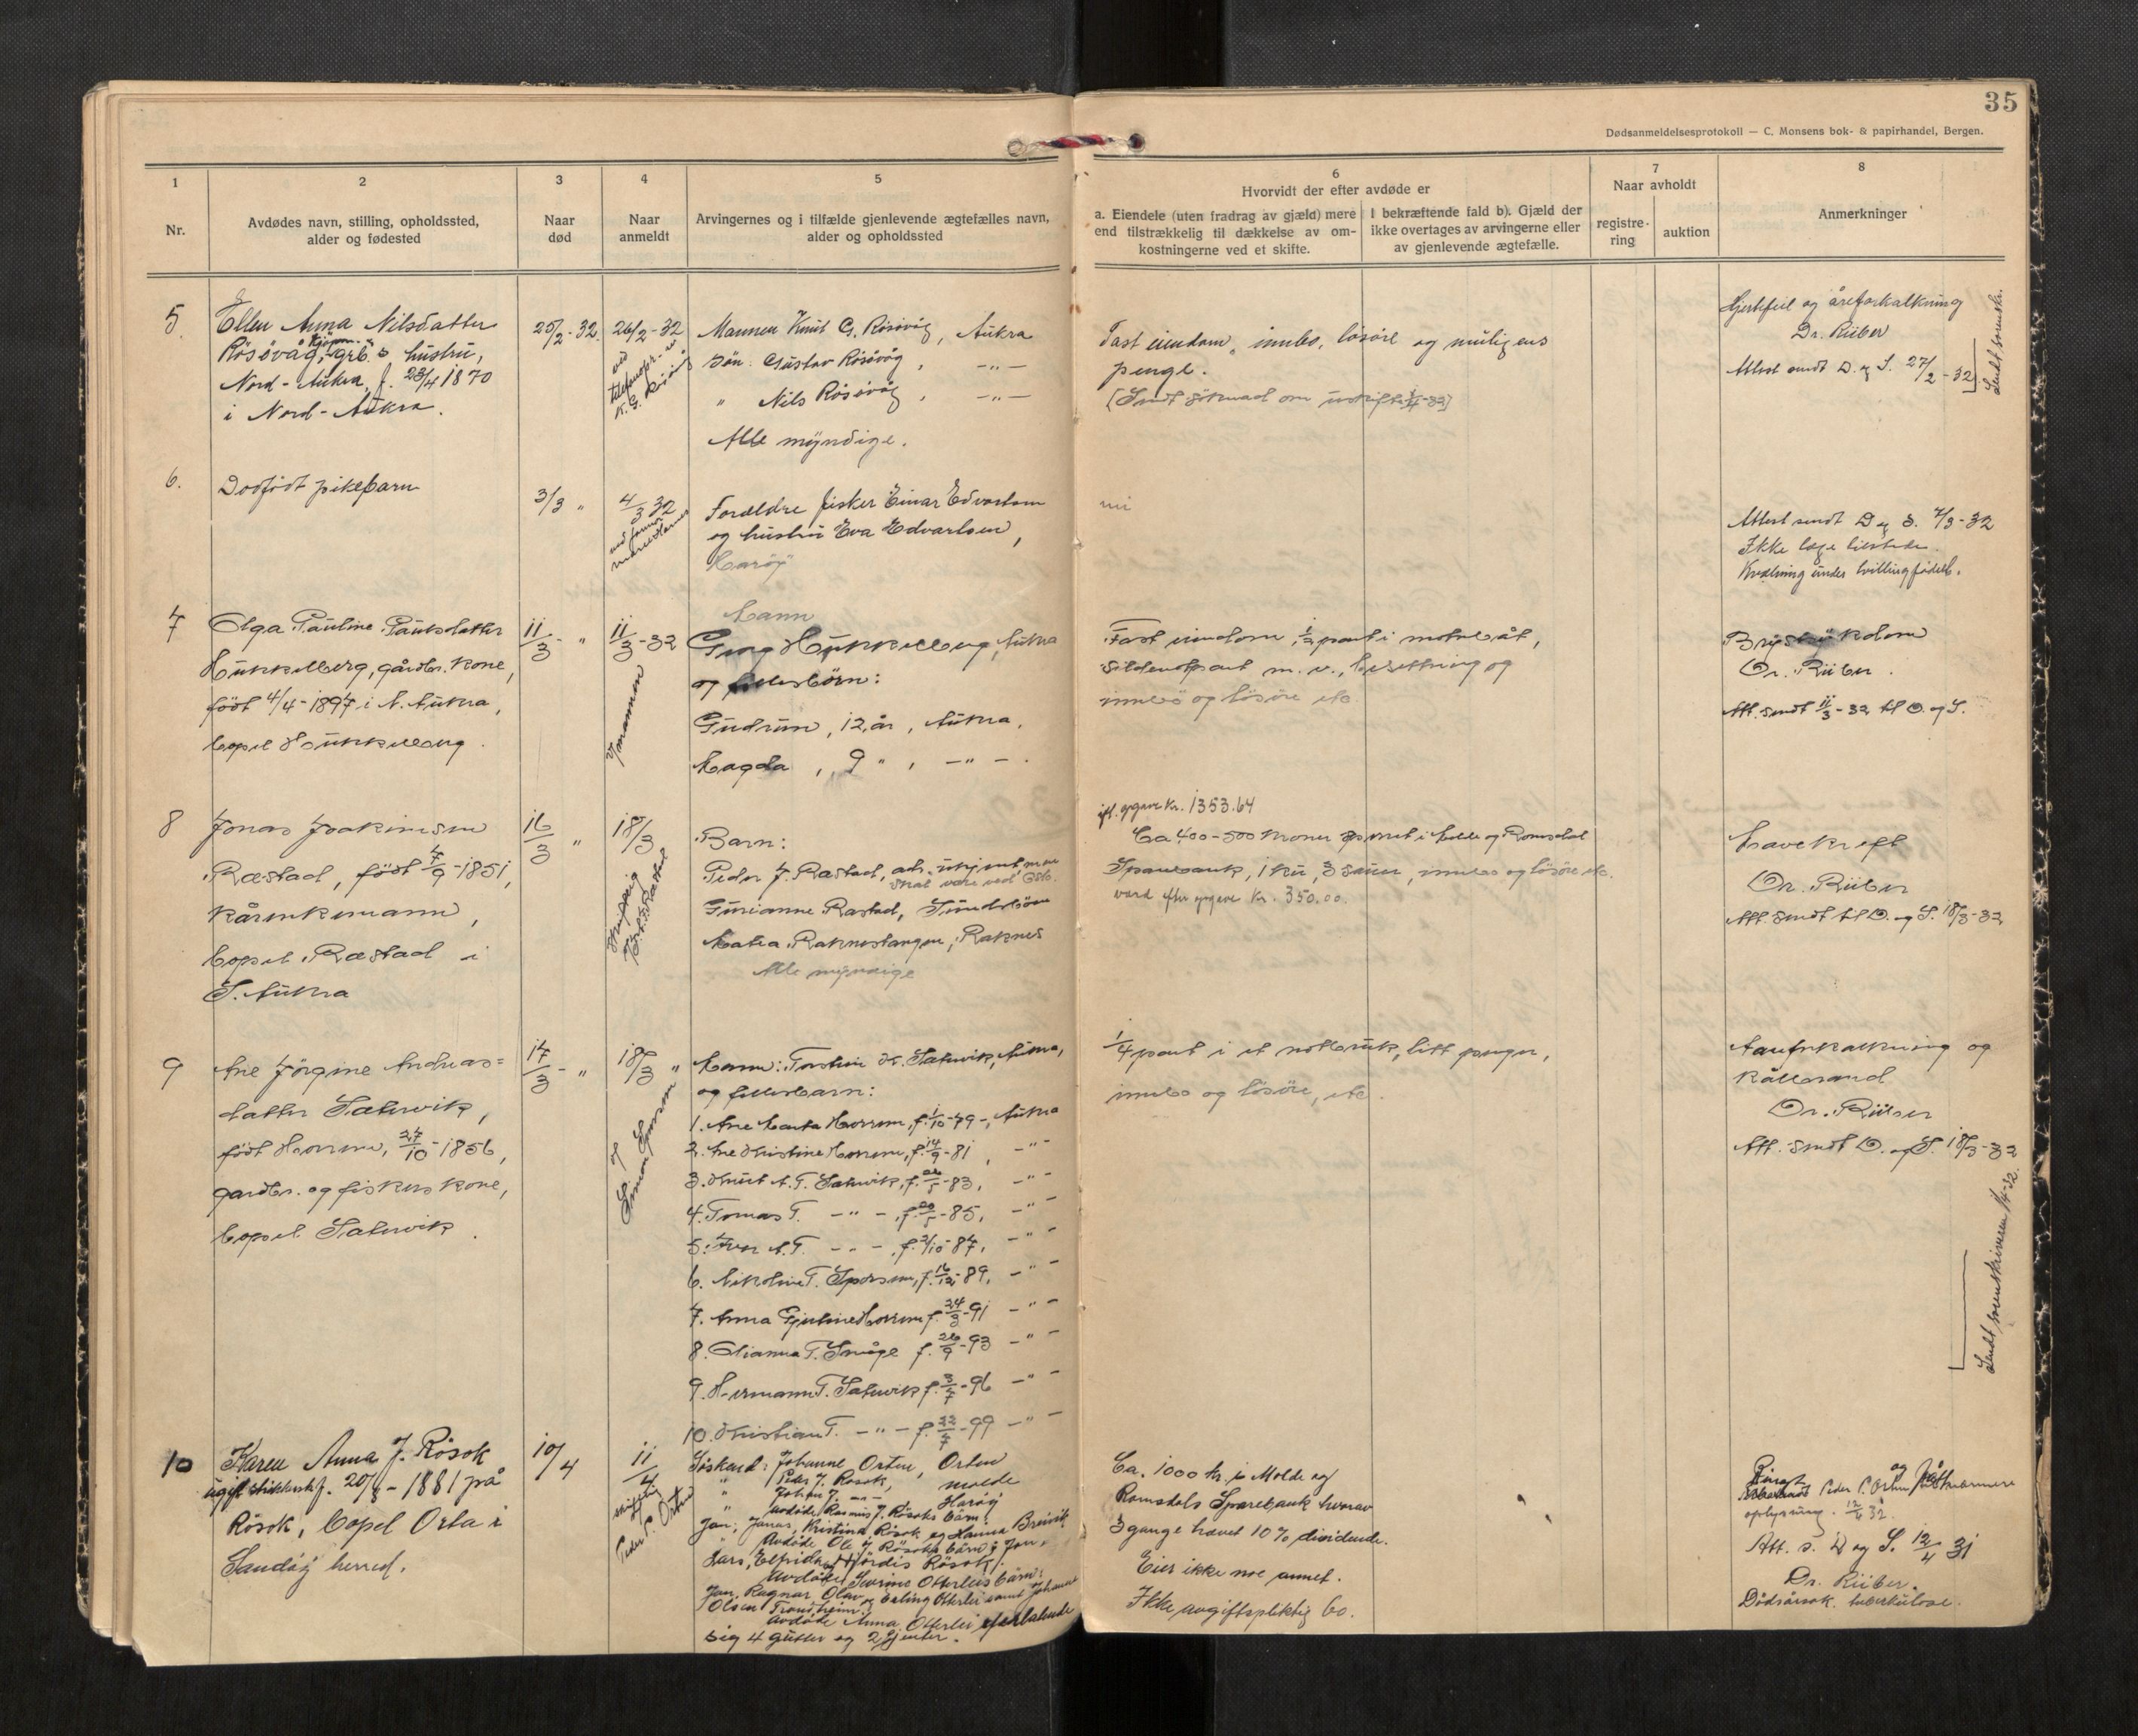 35
Dødsanmeldelsesprotokoll — C. Monsens bok- & papirhandel, Bergen.
1
Nr.
2
Avdødes navn, stilling, opholdssted,
alder og fødested
3
Naar
død
4
Naar
anmeldt
5
Arvingernes og i tilfælde gjenlevende ægtefælles navn,
alder og opholdssted
6
Hvorvidt der efter avdøde er
a. Eiendele (uten fradrag av gjæld) mere
end tilstrækkelig til dækkelse av om-
kostningerne ved et skifte.
I bekræftende fald b). Gjæld der
ikke overtages av arvingerne eller
av gjenlevende ægtefælle.
7
Naar avholdt
registre-
ring
auktion
8
Anmerkninger
5
Ellen Anna Nilsdatter
Rösövåg, grb.s hustru,
Nord-Aukra, f. 23/4 1870
i Nord-Aukra.
25/2-32.
26/2-32
ved
K.G. Rösövåg
Mannen Knut G. Rösövåg, Aukra
Sön: Gustav Rösövåg, -"-
" Nils Rösövåg, -"-
Alle myndige.
Fast eiendom, innbo, lösöre og muligens
penge.
[Sendt söknad om uskifte 1/4-32]
Hjertefeil og åreforkalkning
Dr. Rüber
Attest sendt D. og S. 27/2-32
Sendt sorenskr.
6.
Dödfödt pikebarn
3/3 "
4/3 32
Foreldre fisker Einar Edvardsen
og hustru Eva Edvardsen,
Haröy
nei
Attest sendt D og S. 7/3-32
Ikke læge tilstede.
Kvælning under tvillingfödsel.
7
Olga Pauline Paulsdatter
Hukkelberg, gårdbr. kone,
födt 4/4-1897 i N. Aukra,
bopel Hukkelberg.
11/3- "
11/3-32
v/ mannen
Mann
Georg Hukkelberg, Aukra
og fellesbörn:
Gudrun, 12 år, Aukra,
Magda, 9 ", -"-.
Fast eiendom, 1/2 part i motorbåt,
sildenotpart m.v., besetning og
innbo og lösöre etc.
Brystsykdom
Dr. Rüber.
Att. sendt 11/3-32 til D. og S.
8
Jonas Joakimsen
Ræstad, födt 7/9-1851,
kårenkemann,
bopel Ræstad i
S. Aukra
16/3 "
18/3
skriftlig
Barn:
Peder J. Ræstad, adr. ukjent men
skal være ved Oslo.
Gurianne Rastad, Sundsböen
Matea Raknestangen, Raknes
Alle myndige
ifl. opgave kr. 1353.64
Ca 400-500 kroner oppsmet i Molde og Romsdal
Sparebank, 1 ku, 3 sauer, innbo og lösöre etc.
verd efter opgave kr. 350.00.
Mavekreft
Dr. Rüber
Att. sendt til D. og S. 18/3-32
9
Ane Jörgine Andreas=
datter Sætervik,
födt Horrem, 27/10-1856,
gardbr. og fiskers kone,
bopel Sætervik.
17/3- "
18/3 "
Mann: Torstein K. Sætervik, Aukra,
og fellesbarn:
1. Ane Marta Horrem, f. 1/10-79-, Aukra
2. Ane Kristine Horrem, f. 14/9-81, -"-
3. Knut A. T. Sætervik, f. -83, -"-
4. Tomas T. -"-, f. 20/5-85, -"-
5. Iver A. T. -"-, f. 2/10-87, -"-
6. Nikoline T. Sporsem, f. 16/12-89, -"-
7. Anna Horrem f. 24/3-91 -"-
8. T. Småge f. 26/9-93 -"-
9. Hermann T. Sætervik f. 3/7-96 -"-
10. Kristian T. -"- f. 22/7-99 -"-
1/4 part i et notbruk, litt penger,
innbo og lösöre, etc.
Aareforkalkning og
kållbrand
Dr. Rüber
Att. sendt D. og S. 18/3-32
Sendt sorenskriveren 1/4-32.
10
Karen Anna J. Rösok
ugift f. 20/8-1881 på
Rösok, bopel Orta i
Sandöy herred.
10/4
11/4
skriftlig
Peder P. Orten
Söskend: Johanne Orten, Orten
" Peder J. Rösok, Molde
" Johan J. -"- Haröy
" Avdöde Rasmus J. Rösoks barn:
Jan, Jonas, Kristina Rösok og Hanna Breivik
" Avdöde Ole J. Rösoks barn: Jon,
Lars, Elfrida, Hjördis Rösok.
Avdöde Severine Otterleis barn:
Jan, Ragnar Olav og Erling Otterlei samt Johanne
Olsen Trondheim.
Avdöde Anna Otterlei efterlatende
sig 4 gutter og 2 Gjenter.
Ca. 1000 kr. i Molde og
Romsdals Sparebank hvorav
3 gange hævet 10% dividende.
Eier ikke noe annet.
Ikke avgiftspliktig bo.
Peder P. Orten og nærmere
oplysning. 12/4 32.
Att. s. D og S. 12/4 31
Dr. Rüber.
Dödsårsak. tuberkulose.